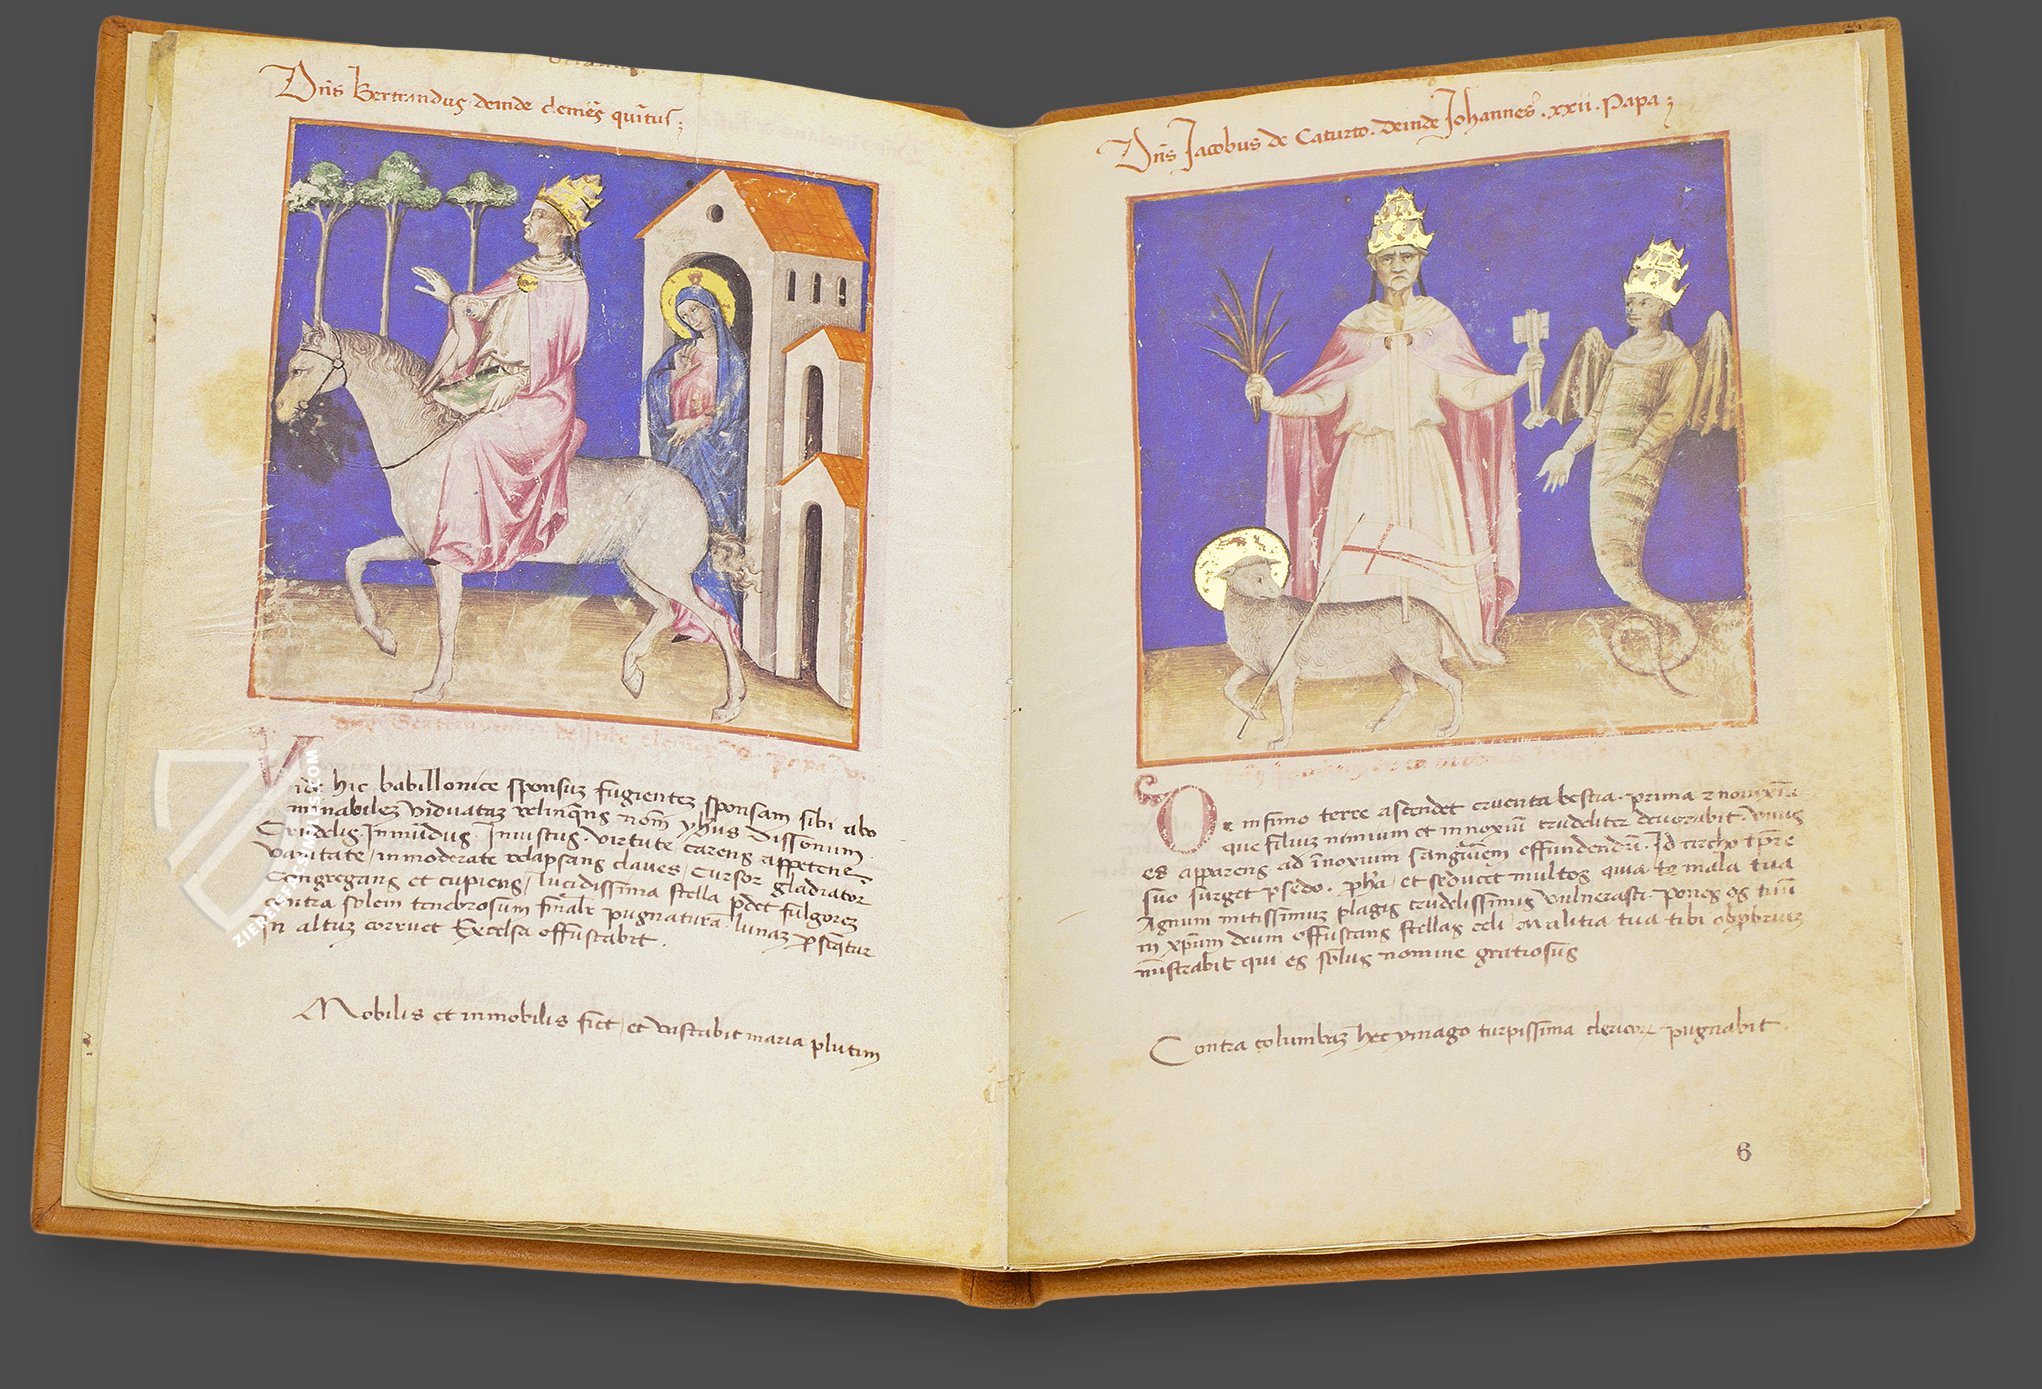 Dns Bertrandus deinde clemēs quītus;
Vide hic babillonice sponsuz fugientez sponsam sibi abo
minabilez viduataz relinqns nom yhus Dissonum
Crudelis Inmūdus Iniustus virtute carens appetens
vanitate inmoderate relapsans claues cursor gladiator
Congregans et cupiens lucidissima stella pdet fulgorez
contra solem tenebrosum finalr pugnatura lunaz
In altuz corruet Excelsa offuscabit.
Mobilis et inmobilis fiet et vastabit maria plutim
Dns Jacobus de Caturto. Deinde Johannes .xxii. Papa;
De infimo terre ascendet cruenta bestia prima z
que filiuz nimium et innoxiū crudeliter deuorabit. vnus
es apparens ad īnoxium sanguīem effundendū. Id circho
suo surget psedo. pha et seducet multos quia te mala tua
Agnum mitissimuz plagis crudelissimis vulnerasti pones os tuū
in xpūm deum offuscans stellas celi Malitia tua tibi obpbriuz
ministrabit qui es solus nomine gratiosus
Contra columbaz hec ymago turpissima clericoꝝ pugnabit
6
ZIEREIS FACSIMILES.COM